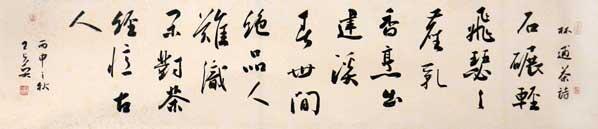 林逋茶詩
石碾輕
飛瑟々
塵乳
香烹出
建溪
春世間
絕品人
難識
閑對茶
經憶古
人
丙申之秋